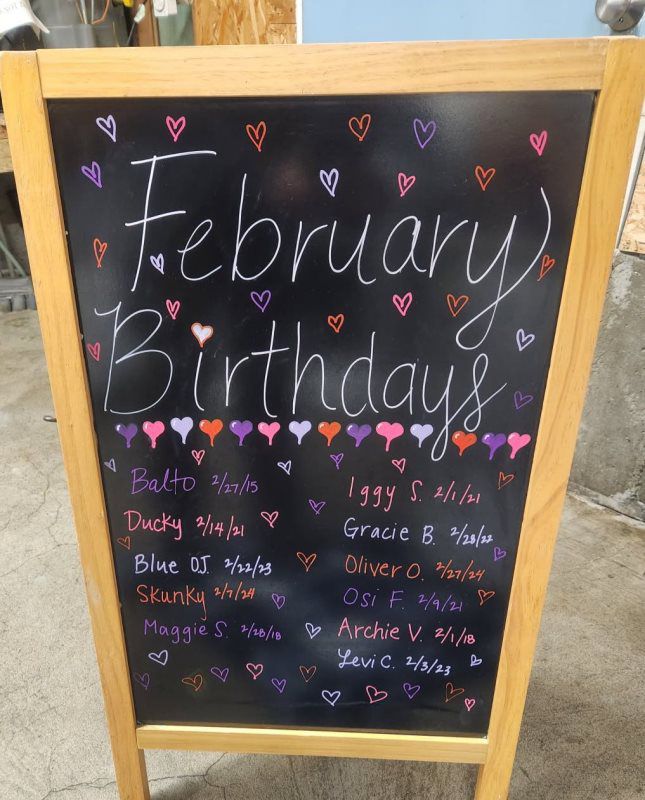 February
Birthdays
Balto 2/27/15
Ducky 2/14/21
Blue O.J. 2/22/23
Skunky 2/7/24
Maggie S. 2/28/18
Iggy S. 2/1/21
Gracie B. 2/28/22
Oliver O. 2/27/24
Osi F. 2/9/21
Archie V. 2/1/18
Levi C. 2/3/23